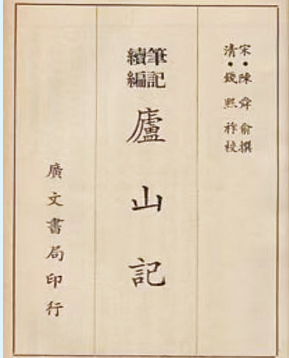 宋•陳舜俞撰
清•錢熙祚校
筆記續編
廬山記
廣文書局印行